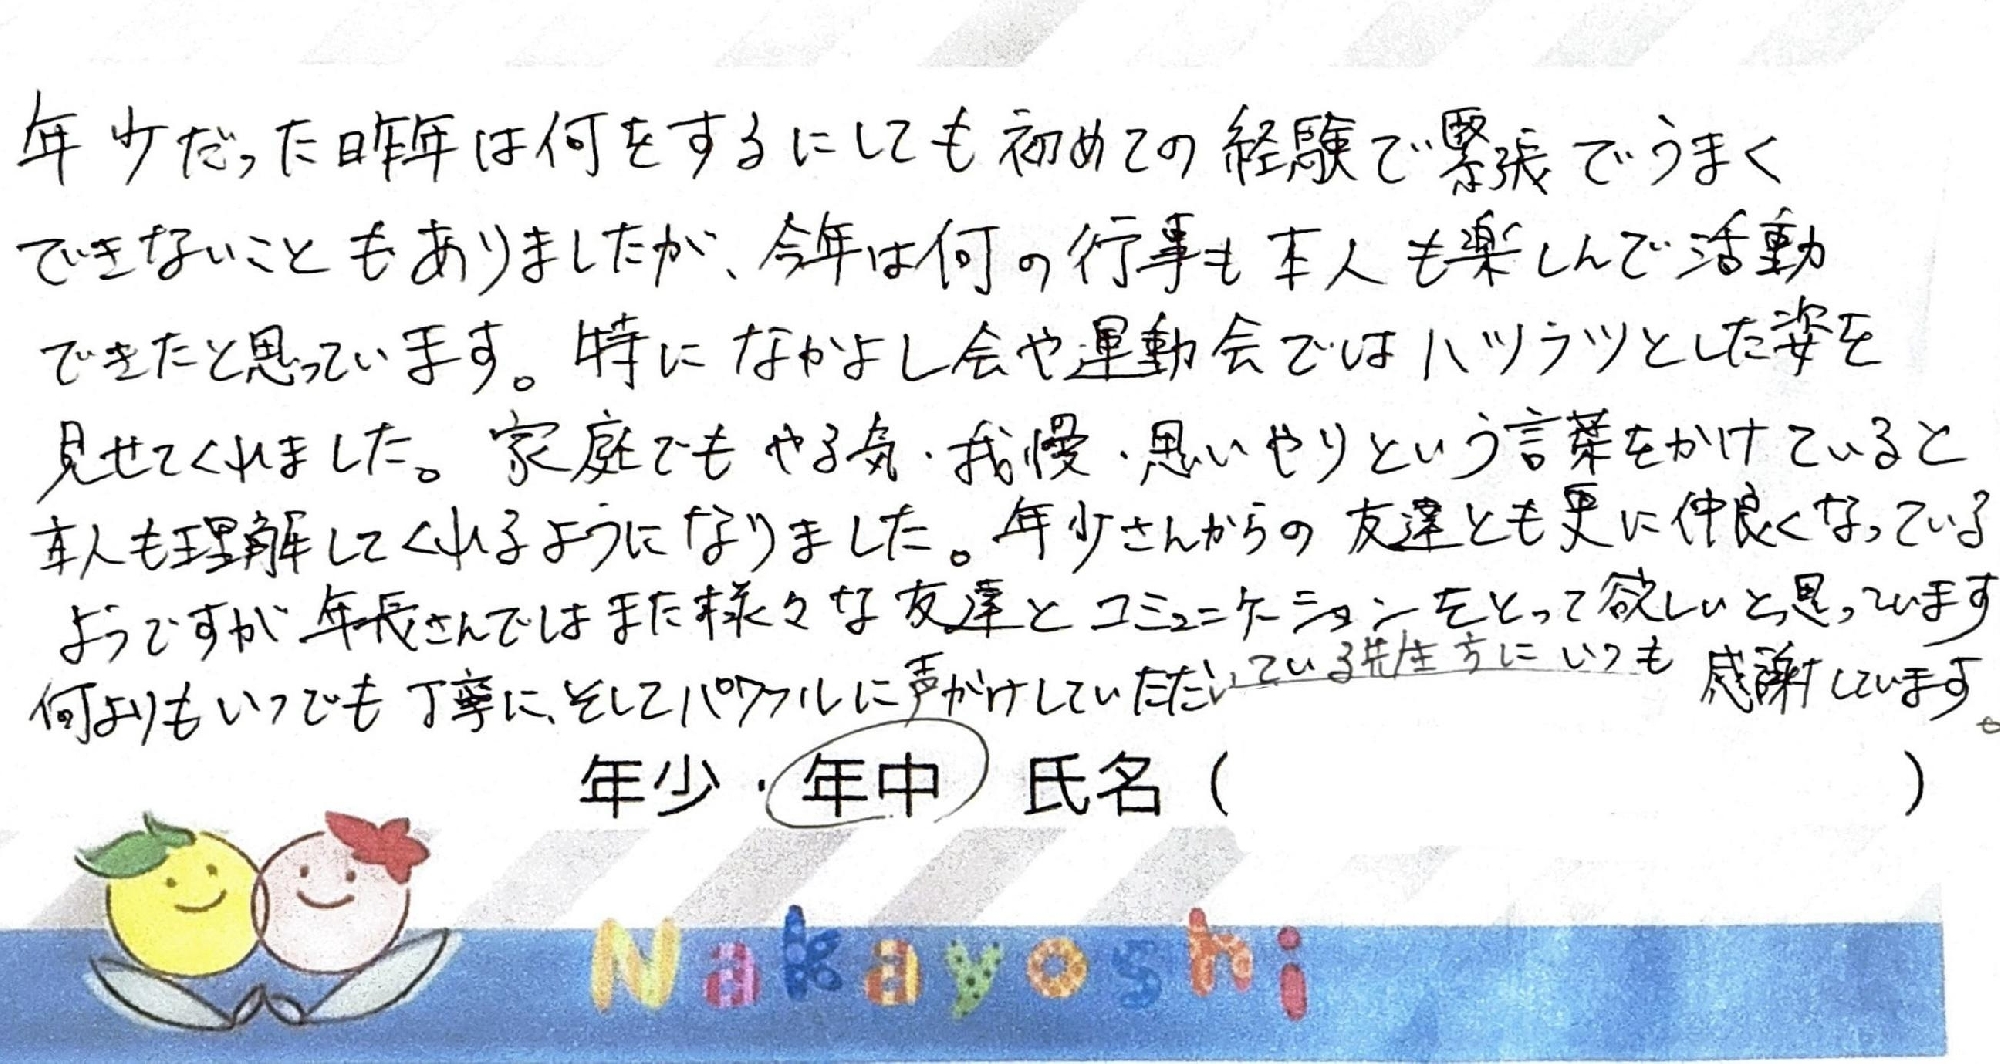 年少だった昨年は何をするにしても初めての経験で緊張でうまく
できないこともありましたが、今年は何の行事も本人も楽しんで活動
できたと思っています。特になかよし会や運動会ではハツラツとした姿を
見せてくれました。家庭でもやる気・我慢・思いやりという言葉をかけていると
本人も理解してくれるようになりました。年少さんからの友達とも更に仲良くなっている
ようですが年長さんではまた様々な友達とコミュニケーションをとって欲しいと思っています
何よりもいつでも丁寧に、そしてパワフルに声がけしていただいている先生方にいつも感謝しています。
年少・年中 氏名( )
Nakayoshi